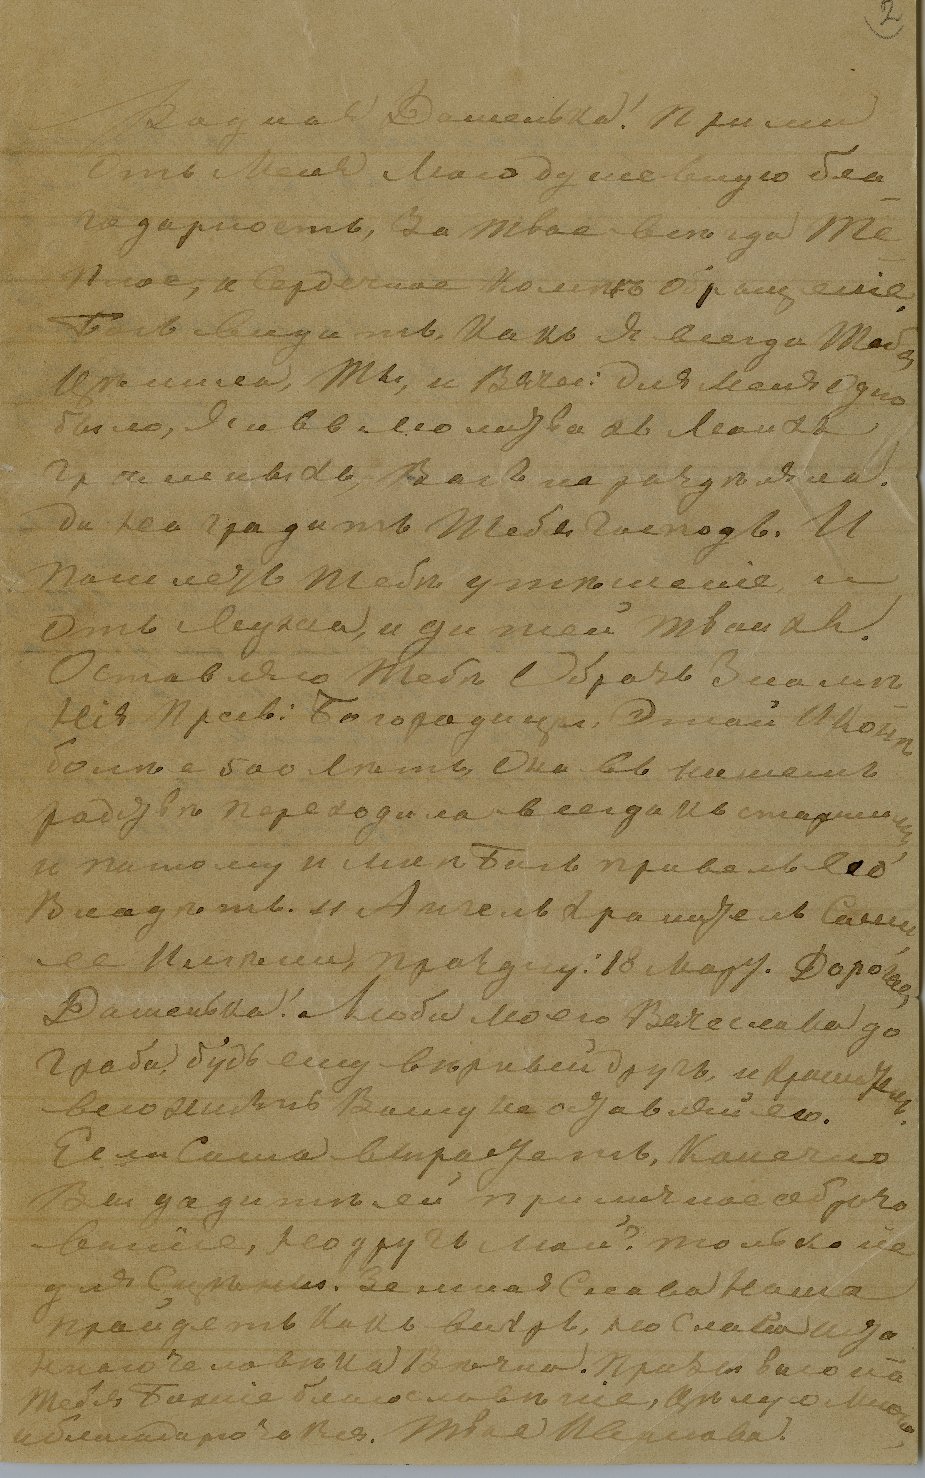 2
Родная Дашенька! прими
Отъ Меня Мою душевную бла
годарность, За твое всегда Те
плое, и Сердечное комнѣ обращеніе.
Богъ видитъ, какъ Я всегда Тебя
Цѣнила, Ты, и Вячес: для Меня одно
было, Я и въ Молитвахъ Моихъ
грѣшныхъ, Васъ не раздѣляла.
да наградитъ Тебя Господь. И
пошлетъ тебѣ утѣшеніе, и
Отъ Мужа, и дитей твоихъ.
Оставляю Тебѣ Образъ Знамѣ
нія Пресв: Богородицы, Этой Иконѣ
болѣе 500 Лѣтъ, Она въ нашемъ
родствѣ переходила всегда къ старшему,
и потому и мнѣ Богъ привелъ Ею
Владѣть. и Ангелъ Хранитель Саши
ее Имѣни, праздну: 18 Мар. Дорогая
Дашенька! Люби моего Вячеслава до
гроба, будь ему вѣрный другъ, и Хранитель.
всю жизнь Вашу не оставляй его.
Если Саша выростетъ, Конечно
Вы дадите ей приличное образо
ваніе, но другъ мой! только не
для Сцѣны. Земная Слава Наша
пройдетъ какъ вихрь, но Слава
человѣка Вѣчна. Призываю на
Тебя Божіе благословѣніе, Цѣлую Много,
и благодарю Твоя